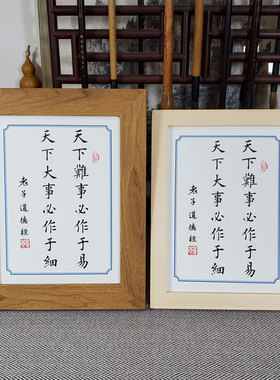 天下難事必作于易
天下大事必作于细
老子道德經
天下難事必作于易
天下大事必作于细
老子道德經